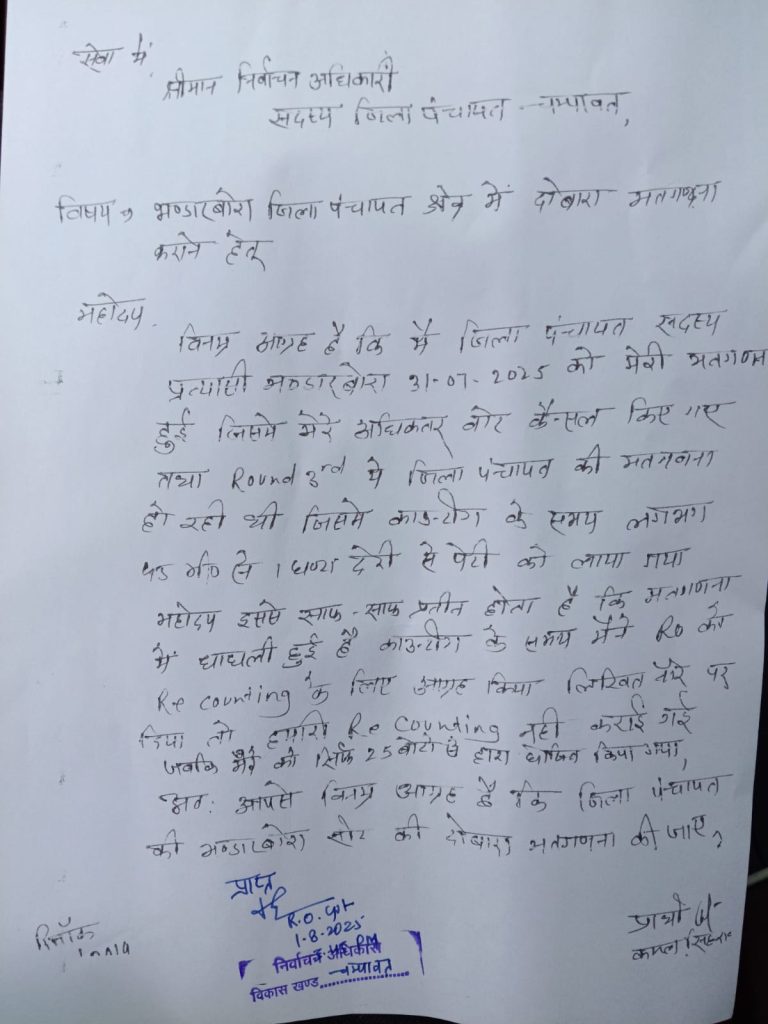 सेवा में,
श्रीमान निर्वाचन अधिकारी
सदस्य जिला पंचायत चम्पावत,
विषय, भण्डारबोरा जिला पंचायत क्षेत्र में दोबारा मतगणना
कराने हेतू
महोदय,
विनम्र आग्रह है कि मै जिला पंचायत सदस्य
प्रत्यासी भण्डारबोरा 31-07-2025 को मेरी मतगणना
हुई जिसमे मेरे अधिकतर वोट कैन्सल किए गए
तथा Round 3rd पे जिला पंचायत की मतगणना
हो रही थी जिसमे काउन्टींग के समय लगभग
45 से 1 घण्टा देरी से पेटी को लाया गया
महोदय इससे साफ-साफ प्रतीत होता है कि मतगणना
में धाधली हुई है काउन्टींग के समय मैने RO को
Re counting के लिए आग्रह किया लिखित तौर पर
दिया तो हमारी Re counting नही कराई गई
जबकि मेरे को सिर्फ 25 वोटो से हारा घोषित किया गया,
अतः आपसे विनम्र आग्रह है कि जिला पंचायत
की भण्डारबोरा सीट की दोबारा मतगणना की जाए,
प्राप्त
R.O.
1-8-2025
निर्वाचन अधिकारी
विकास खण्ड चम्पावत
प्रार्थी
दिनाँक